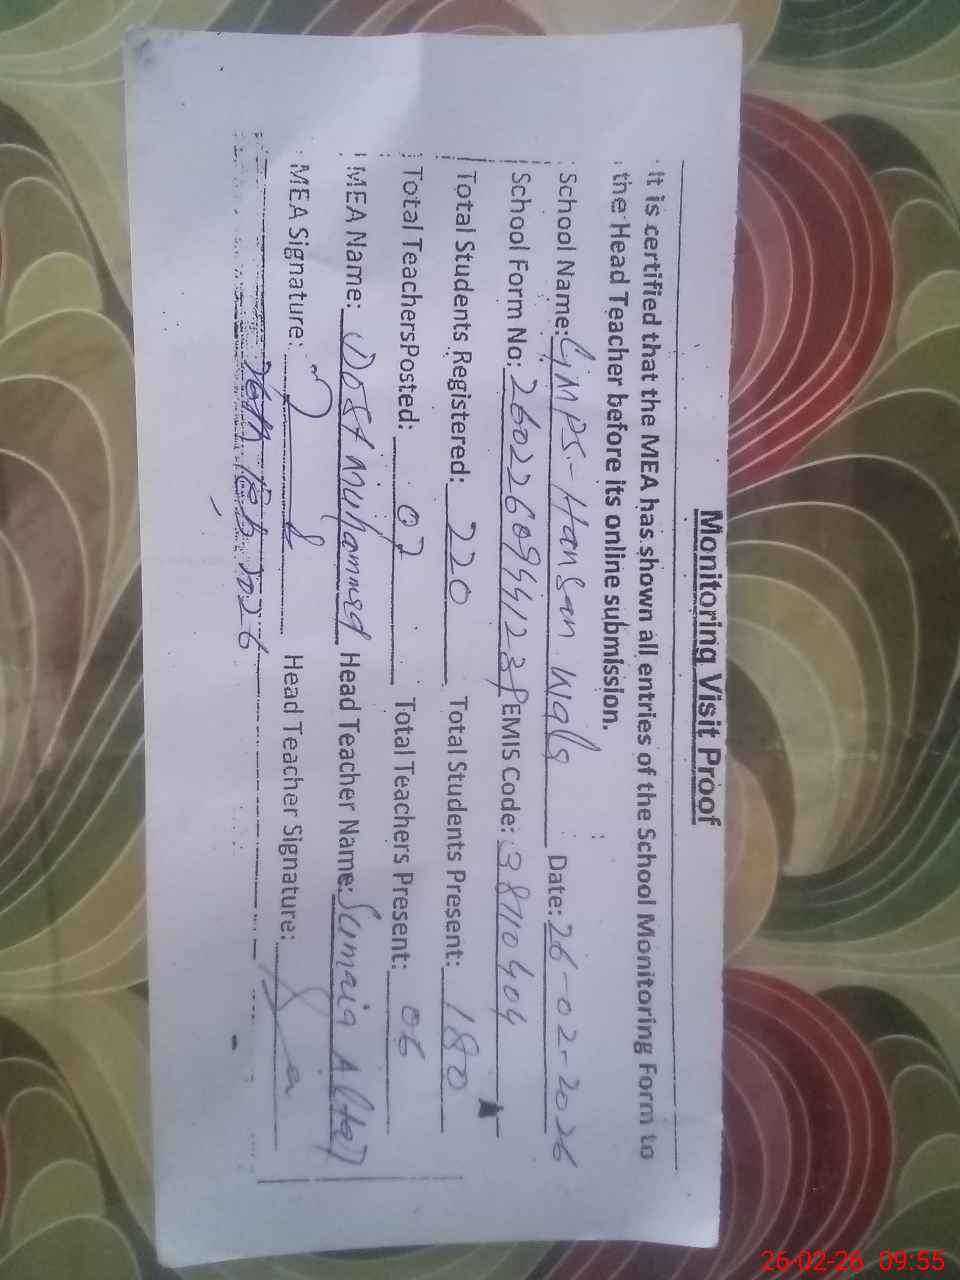 Monitoring Visit Proof
It is certified that the MEA has shown all entries of the School Monitoring Form to
the Head Teacher before its online submission.
School Name: GMPS-Hansan Wala Date: 26-02-2026
School Form No: EMIS Code: 38110404
Total Students Registered: 220 Total Students Present: 180
Total TeachersPosted: 07 Total Teachers Present: 06
MEA Name: Dost Muhammad Head Teacher Name: Sumaia Altaf
MEA Signature: Head Teacher Signature:
26th Feb 2026
26-02-26 09:55